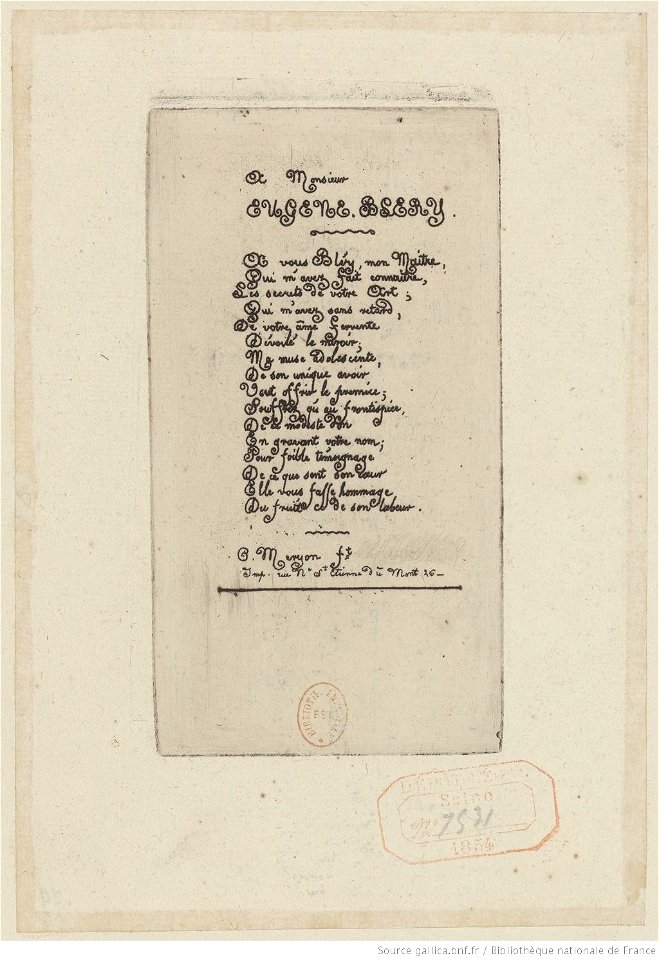 A Monsieur
EUGENE. BLERY.
A vous Bléry, mon Maitre,
Qui m'avez fait connaître,
Les secrets de votre Art ;
Qui m'avez sans retard,
De votre âme fervente
Dévoilé le miroir,
Ma muse adolescente,
De son unique avoir
Veut offrir le prémice ;
Souffrez qu'au frontispice,
De ce modeste don
En gravant votre nom ;
Pour foible témoignage
De ce que sent son cœur
Elle vous fasse hommage
Du fruit ce de son labeur.
C. Meryon ft
Imp. rue Ne St Etienne du Mont 26
BIBLIOTH. IMPERIALE
EST.
Seine
No 7531
1854
Source gallica.bnf.fr / Bibliothèque nationale de France